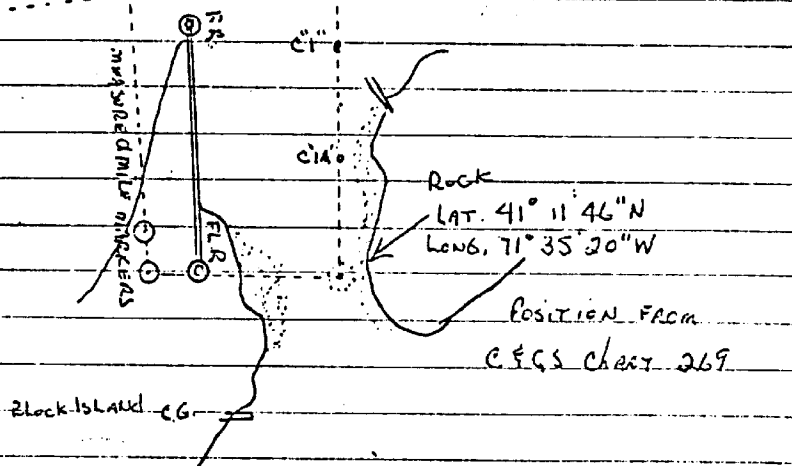 F.R.
C"1"
MEASURED MILE MARKERS
C"1A"
ROCK
LAT. 41° 11' 46"N
LONG. 71° 35' 20"W
FL R
POSITION FROM
C&GS CHART 269
BLOCK ISLAND C.G.